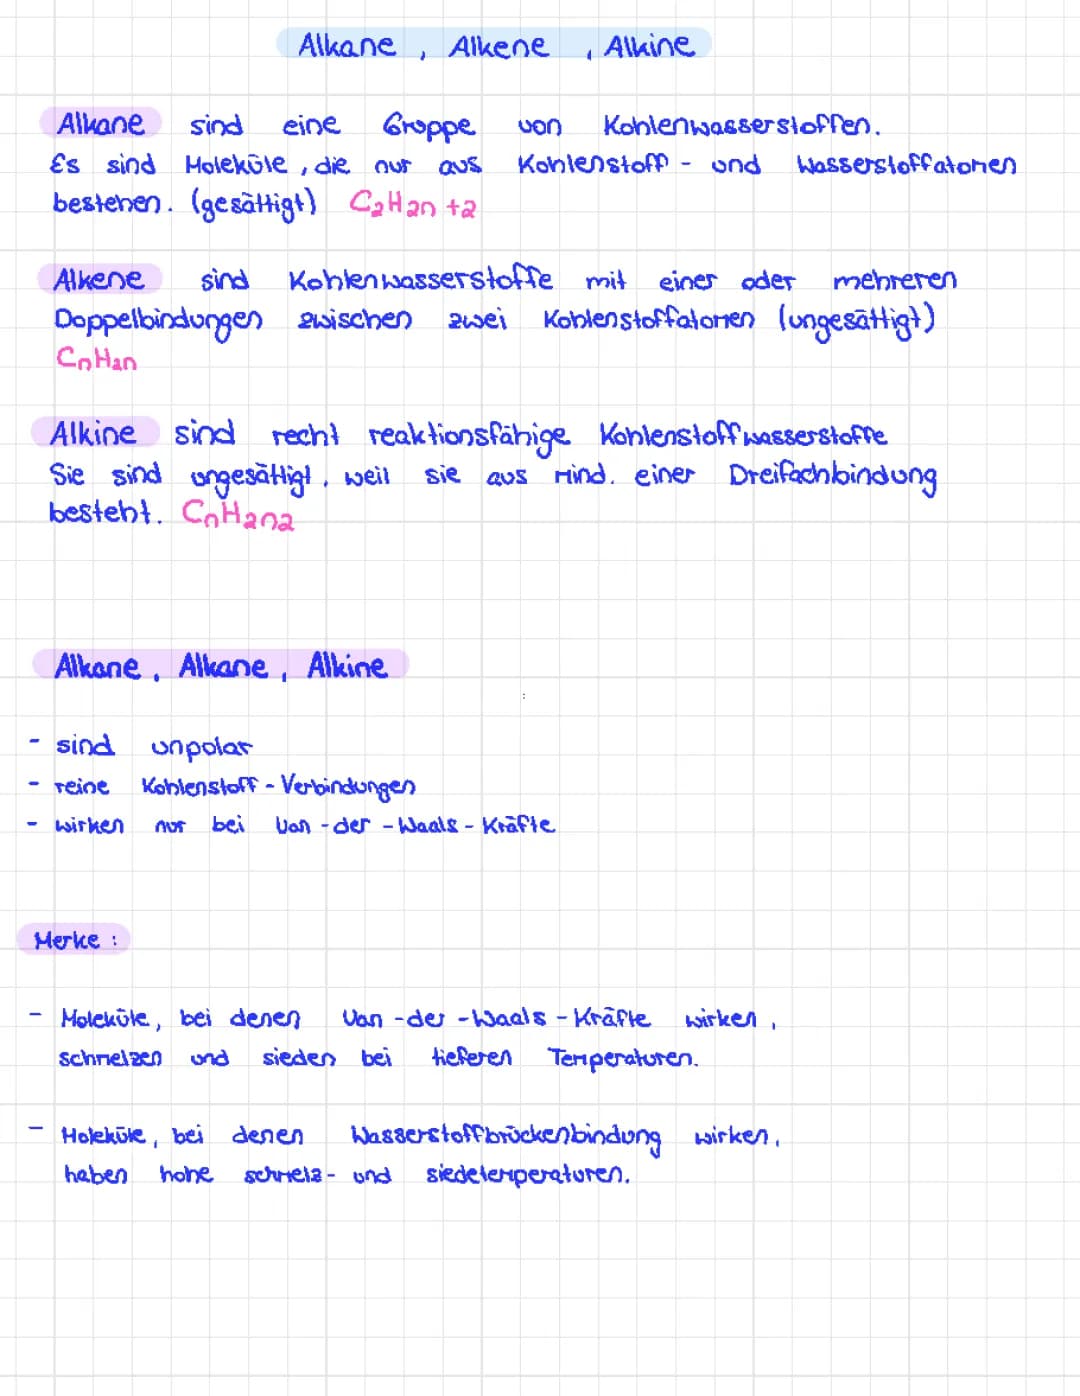 Alkane, Alkene, Alkine
Alkane sind eine Gruppe von Kohlenwasserstoffen.
Es sind Moleküle, die nur aus Kohlenstoff- und Wasserstoffatomen
bestehen. (gesättigt) C₂H₂n+2
Alkene sind Kohlenwasserstoffe mit einer oder mehreren
Doppelbindungen zwischen zwei Kohlenstoffatomen (ungesättigt)
CnH2n
Alkine sind recht reaktionsfähige Kohlenstoffwasserstoffe
Sie sind ungesättigt, weil sie aus mind. einer Dreifachbindung
besteht. CnH2n2
Alkane, Alkane, Alkine
- sind unpolar
- reine Kohlenstoff-Verbindungen
- wirken nur bei Van-der-Waals-Kräfte
Merke:
- Moleküle, bei denen Van-der-Waals-Kräfte wirken,
schmelzen und sieden bei tieferen Temperaturen.
- Moleküle, bei denen Wasserstoffbrückenbindung wirken,
haben hohe schmelz- und siedetemperaturen.